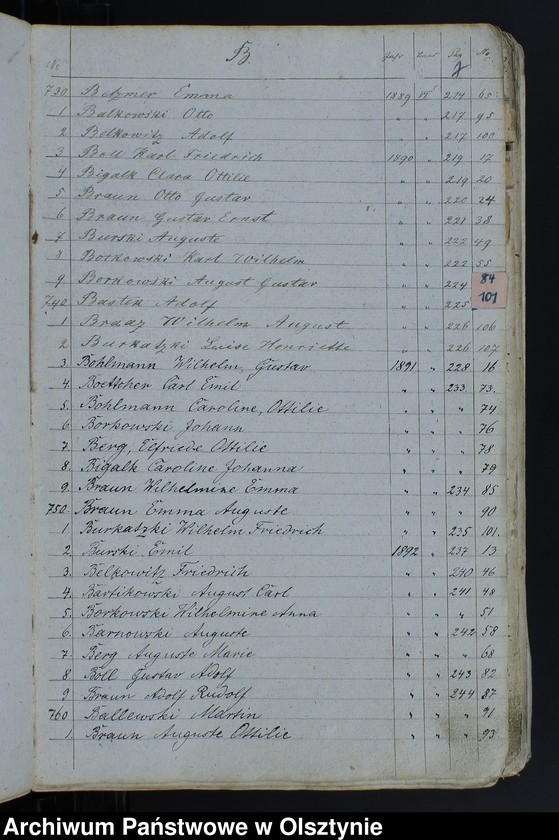 B.
No Jahr Pag No
7
730 Betzmer Emma 1889 VI 214 65.
1 Balkowski Otto " " 217 95
2 Belkowitz Adolf " " 217 100
3 Boll Karl Friedrich 1890 " 219 17
4 Bigalk Clara Ottilie " " 219 20
5 Braun Otto Gustav " " 220 24
6 Braun Gustav Ernst " " 221 38
7 Burski Auguste " " 222 49
8 Borkowski Karl Wilhelm " " 222 55
9 Borkowski August Gustav " " 224 84
740 Bastek Adolf " " 225 101
1 Braaz Wilhelm August " " 226 106
2 Burkatzki Luise Henriette " " 226 107
3. Bohlmann Wilhelm, Gustav 1891 " 228 16
4. Boettcher Carl Emil " " 233 73.
5. Bohlmann Caroline, Ottilie " " " 74
6 Borkowski Johann " " " 76
7. Berg, Elfriede Ottilie " " " 78
8. Bigalk Caroline Johanna " " " 79
9. Braun Wilhelmine Emma " " 234 85
750. Braun Emma Auguste " " " 90
1. Burkatzki Wilhelm Friedrich " " 235 101.
2 Burski Emil 1892 " 237 13
3. Belkowitz Friedrich " " 240 46
4. Bartikowski August Carl " " 241 48
5. Borkowski Wilhelmine Anna " " " 51
6. Barnowski Auguste " " 242 58
7. Berg Auguste Marie " " " 68
8 Boll Gustav Adolf " " 243 82
9 Braun Adolf Rudolf " " 244 87
760 Ballewski Martin " " " 91
1. Braun Auguste Ottilie " " " 93
Archiwum Państwowe w Olsztynie